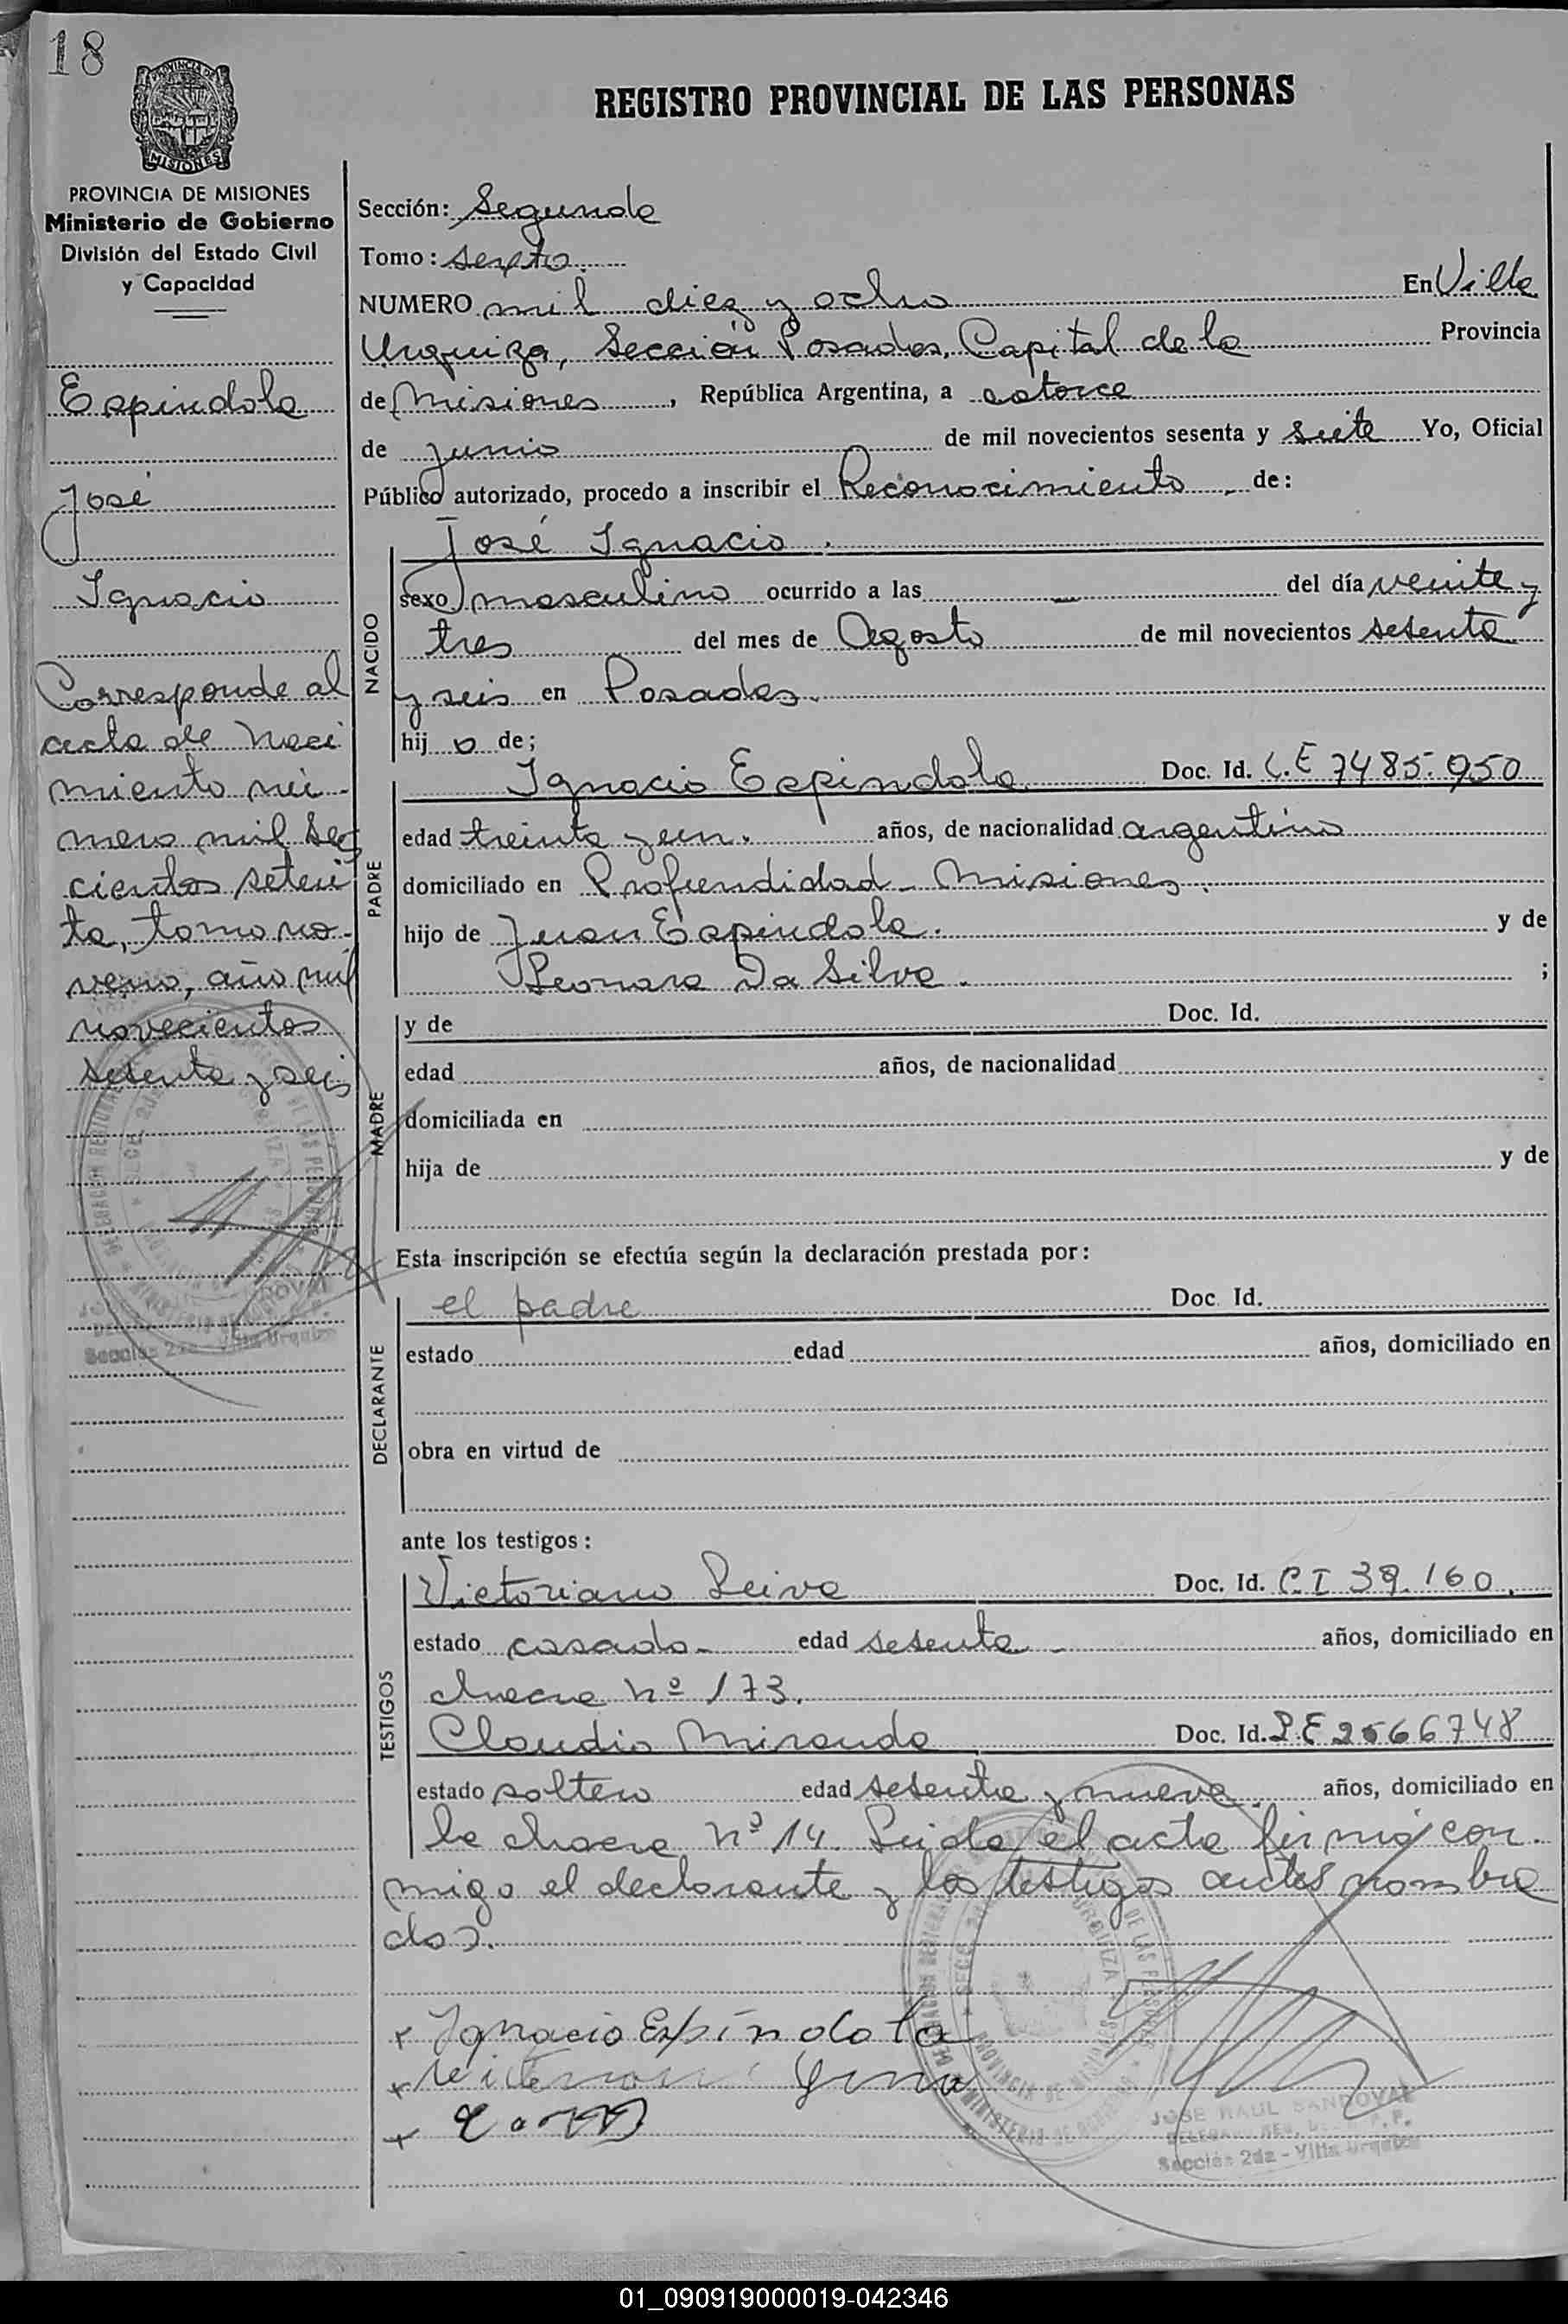 18
PROVINCIA DE MISIONES
Ministerio de Gobierno
División del Estado Civil
y Capacidad
Espindola
José
Ignacio
Corresponde al
acta de naci
miento nú-
mero mil seis
cientos seten
ta, tomo no-
veno, año mil
novecientos
setenta y seis
REGISTRO PROVINCIAL DE LAS PERSONAS
Sección: Segunda
Tomo: sexto.
NUMERO mil diez y ocho En Villa
Urquiza, Sección Posadas, Capital de la Provincia
de Misiones, República Argentina, a catorce
de junio de mil novecientos sesenta y siete Yo, Oficial
Público autorizado, procedo a inscribir el Reconocimiento de:
NACIDO
José Ignacio.
sexo masculino ocurrido a las — del día veinte y
tres del mes de Agosto de mil novecientos setenta
y seis en Posadas.
hijo de;
PADRE
Ignacio Espindola Doc. Id. L.E 7485.950
edad treinta y un. años, de nacionalidad argentino
domiciliado en Profundidad - Misiones.
hijo de Juan Espindola. y de
Leonora Da Silva. ;
MADRE
y de Doc. Id.
edad años, de nacionalidad
domiciliada en
hija de y de
Esta inscripción se efectúa según la declaración prestada por:
DECLARANTE
el padre Doc. Id.
estado edad años, domiciliado en
obra en virtud de
ante los testigos:
TESTIGOS
Victoriano Leiva Doc. Id. C.I 39.160.
estado casado- edad setenta - años, domiciliado en
chacra nº 173.
Claudio Miranda Doc. Id. L.E 2566748
estado soltero edad setenta y nueve. años, domiciliado en
la chacra nº 14. Leida el acta firmó con-
migo el declarante y los testigos antes nombra
dos.
+ Ignacio Espíndola
JOSE RAUL SANDOVAL
Sección 2da - Villa Urquiza
01_090919000019-042346